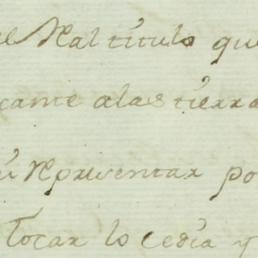 el Rl titulo que
cante alas tierra
su Representar po
tocar lo cedia y